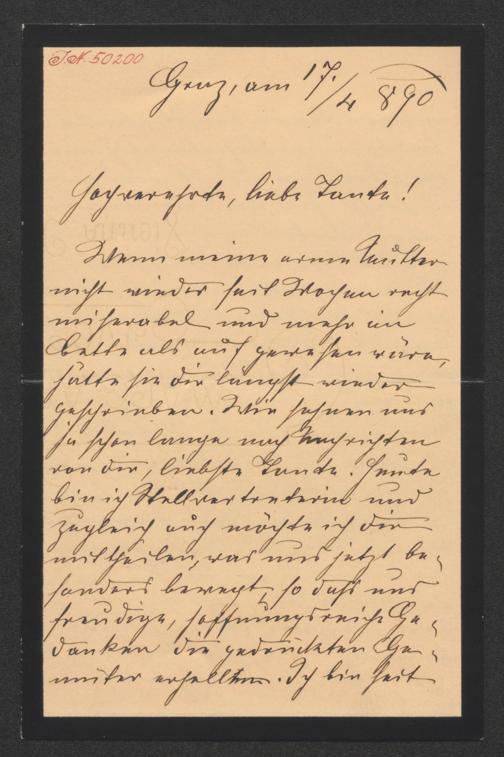 I.N. 50200
Graz, am 17./4 890
Hochverehrte, liebe Tante!
Wenn meine arme Mutter
nicht wieder seit Wochen recht
miserabel und mehr im
Bette als auf gewesen wäre,
hätte sie dir längst wieder
geschrieben. Wir sehnen uns
ja schon lange nach Nachrichten
von dir, liebste Tante. Heute
bin ich Stellvertreterin und
zugleich auch möchte ich dir
mittheilen, was uns jetzt be-
sonders bewegt, so daß uns
freudige, hoffnungsreiche Ge-
danken die gedrückten Ge-
müter erhellten. Ich bin seit